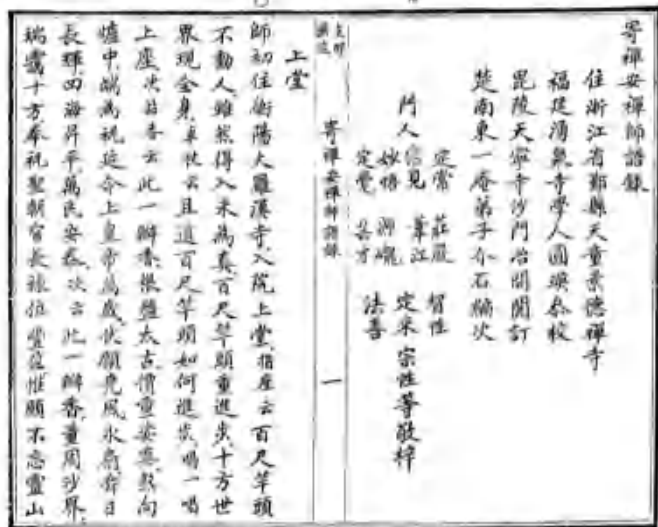 寄禪安禪師語錄
住浙江省鄞縣天童景德禪寺
福建湧泉寺學人圓瑛恭校
毘陵天寧寺沙門冶開閱訂
楚南東一庵弟子介石編次
門人
定常 莊嚴 智性
信見 葦江 定來 宗性等敬梓
妙悟
定覺 法善
寄禪安禪師語錄 一
上堂
師初住衡陽大羅漢寺入院上堂指座云百尺竿頭
不動人雖然得入未為真百尺竿頭重進步十方世
界現全身卓杖云且道百尺竿頭如何進步喝一喝
上座次拈香云此一瓣香根盤太古價重娑婆爇向
爐中端為祝延今上皇帝萬歲伏願堯風永扇舜日
長輝四海昇平萬民安泰次云此一瓣香量周沙界
瑞靄十方奉祝聖朝官長祿位豐位惟願不忘靈山